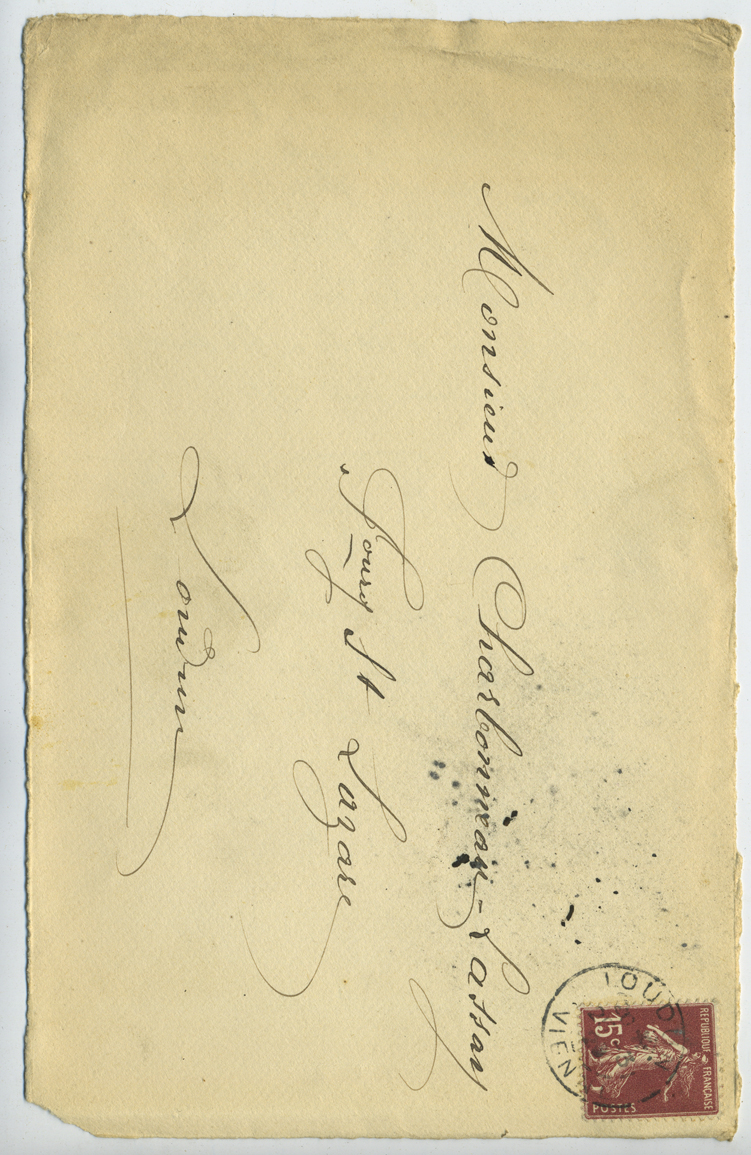 Monsieur Charbonneau-Lassay
Fourg St Lazare
Loudun
LOUDUN
VIEN
REPUBLIQUE FRANÇAISE
15c
POSTES